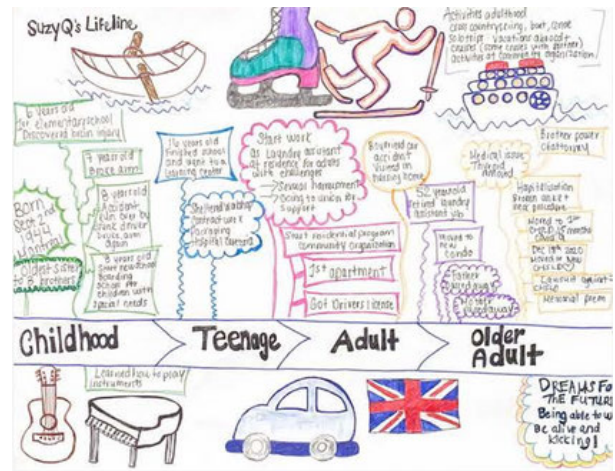 Suzy Q's Lifeline
Activities adulthood
cross country skiing, boat, canoe
solo trips vacations abroad +
cruises (some cruises with partner)
activities at community organization
6 years old
1st elementary school
Discovered brain injury
7 year old
Broke arm
8 year old
Accident
run over by
drunk driver
broke arm
again
8 years old
Start new school
Boarding
School for
children with
special needs
Born
Sept 2nd
1944
Montreal
Oldest sister
to 3 brothers
16 years old
Finished school
and went to a
learning center
Sheltered workshop
contract work
Packaging
Hospital Camera
Start work
as laundry assistant
at residence for adults
with challenges
→ Sexual harassment
→ Going to union for
support
Start residential program
community organization
1st apartment
Got Drivers license
Boyfriend car
accident
nursing home
52 years old
Retired laundry
assistant job
Moved to
new
condo
Father
Passed away
Mother
passed away
Medical issue
Brother power
of attorney
Hospitalization
Broken ankle +
Moved to 1st
CHSLD
months
Dec 18th 2020
Moved in new
CHSLD
Lawsuit against
Childhood
Teenage
Adult
Older
Adult
Learned how to play
instruments
DREAMS FO
THE FUTURE
Being able to w
Be alive and
kicking!